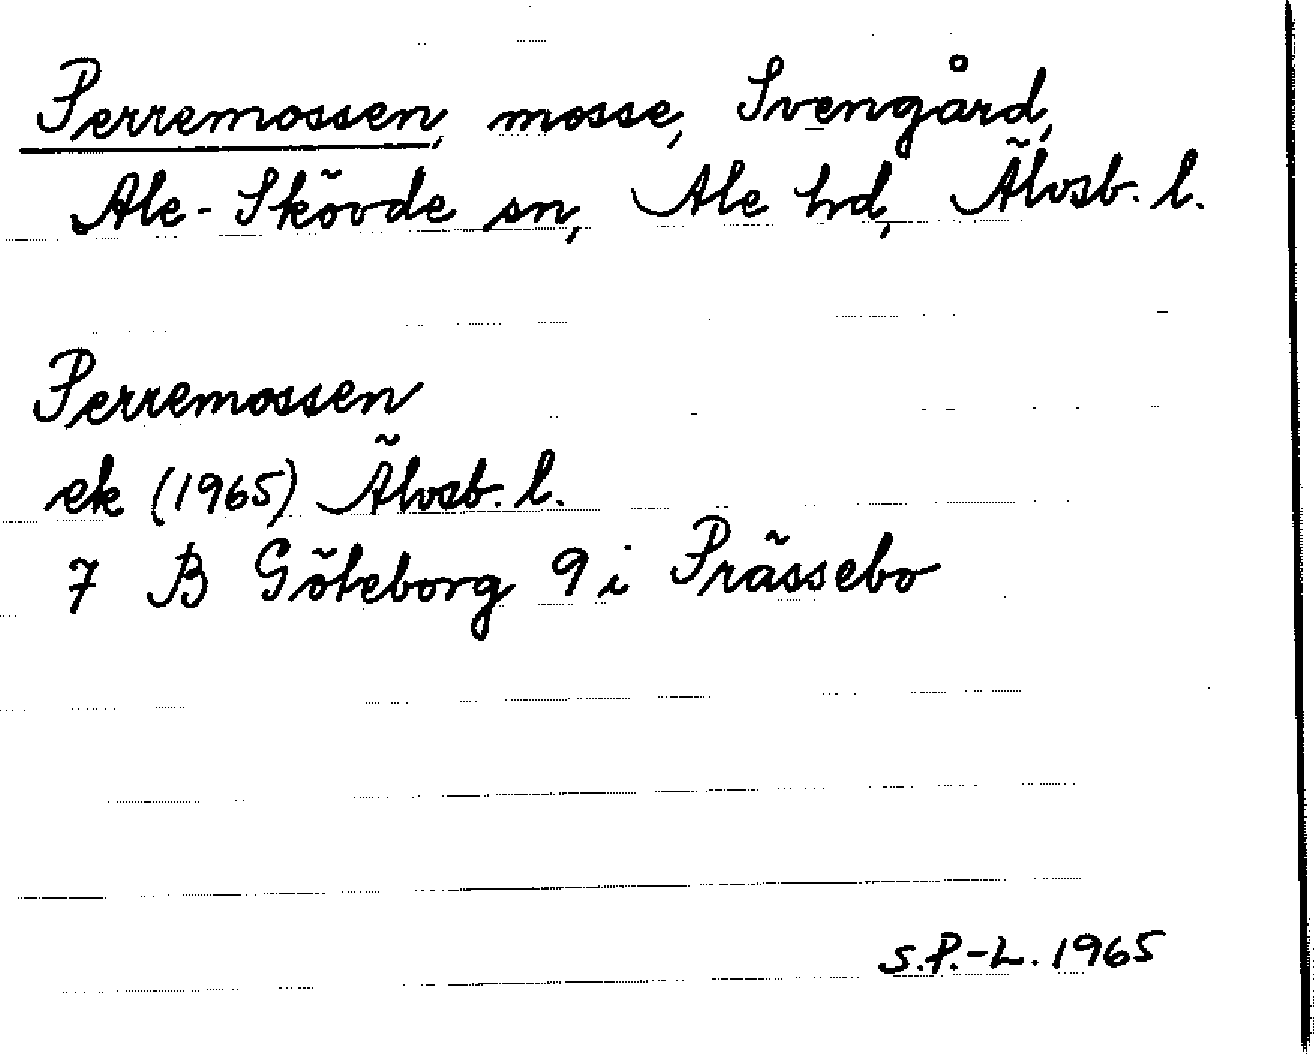 Perremossen, mosse, Svengård,
Ale-Skövde sn, Ale hd, Älvsb. l.
Perremossen
ek (1965) Älvsb. l.
7 B Göteborg 9 i Prässebo
S.P.-L. 1965